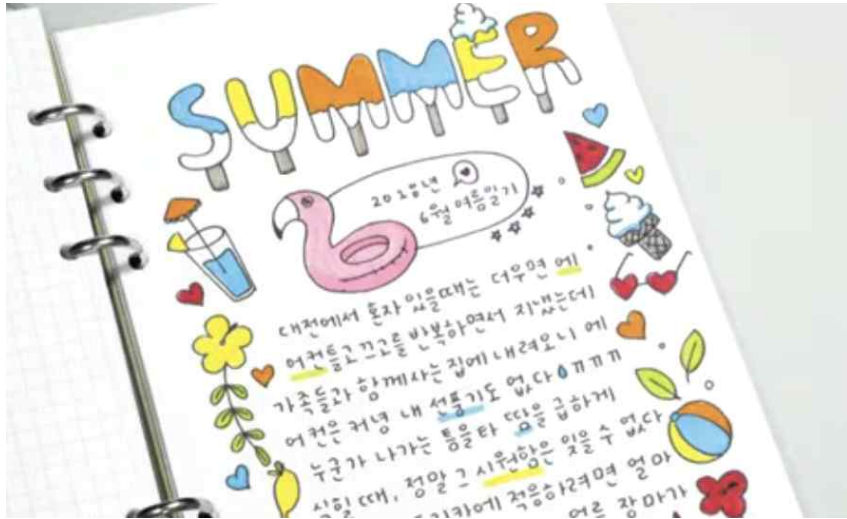 SUMMER
2018년
6월 여름일기
대전에서 혼자 있을때는 더우면 에
어컨틀고끄고를 반복하면서 지냈는데
가족들과 함께사는 집에 내려오니 에
어컨은 커녕 내 선풍기도 없다 ㅠㅠㅠ
누군가 나가는 틈을타 땀을 급하게
식힐 때, 정말 그 시원함은 잊을 수 없다
적응하려면 얼마
여름 장마가